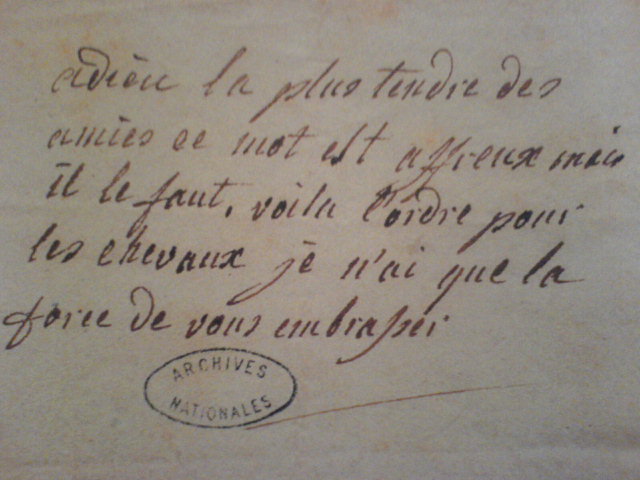 adieu la plus tendre des
amies ce mot est affreux mais
il le faut, voila l'ordre pour
les chevaux je n'ai que la
force de vous embrasser
ARCHIVES
NATIONALES